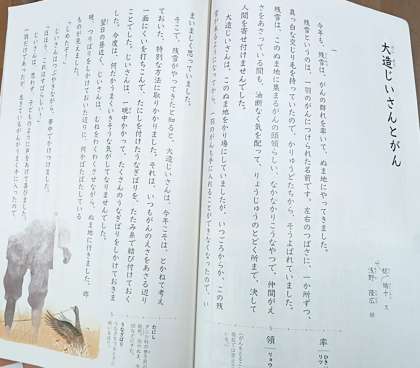 大造じいさんとがん
椋 鳩十 文
　今年も、残雪は、がんの群れを率いて、ぬま地にやってきました。
　残雪というのは、一羽のがんにつけられた名前です。左右のつばさに、一か所ずつ、
真っ白な交じり毛を持っていたので、かりゅうどたちから、そうよばれていました。
　残雪は、このぬま地に集まるがんの頭領らしい、なかなかりこうなやつで、仲間がえ
さをあさっている間も、油断なく気を配って、りょうじゅうのとどく所まで、決して
人間を寄せ付けませんでした。
　大造じいさんは、このぬま地をかり場にしていましたが、いつごろからか、この残
雪が来るようになってから、一羽のがんも手に入れることができなくなったので、い
まいましく思っていました。
　そこで、残雪がやってきたと知ると、大造じいさんは、今年こそは、とかねて考え
ておいた、特別な方法に取りかかりました。それは、いつもがんのえさをあさる辺り
一面にくいを打ちこんで、たにしを付けたうなぎばりを、たたみ糸で結び付けておく
ことでした。じいさんは、一晩中かかって、たくさんのうなぎばりをしかけておきま
した。今度は、何だかうまくいきそうな気がしてなりませんでした。
　翌日の昼近く、じいさんは、むねをわくわくさせながら、ぬま地に行きました。昨
晩、つりばりをしかけておいた辺りに、何かばたばたしている
ものが見えました。
「しめたぞ！」
　じいさんはつぶやきながら、夢中でかけつけました。
率
領
たにし
うなぎばり